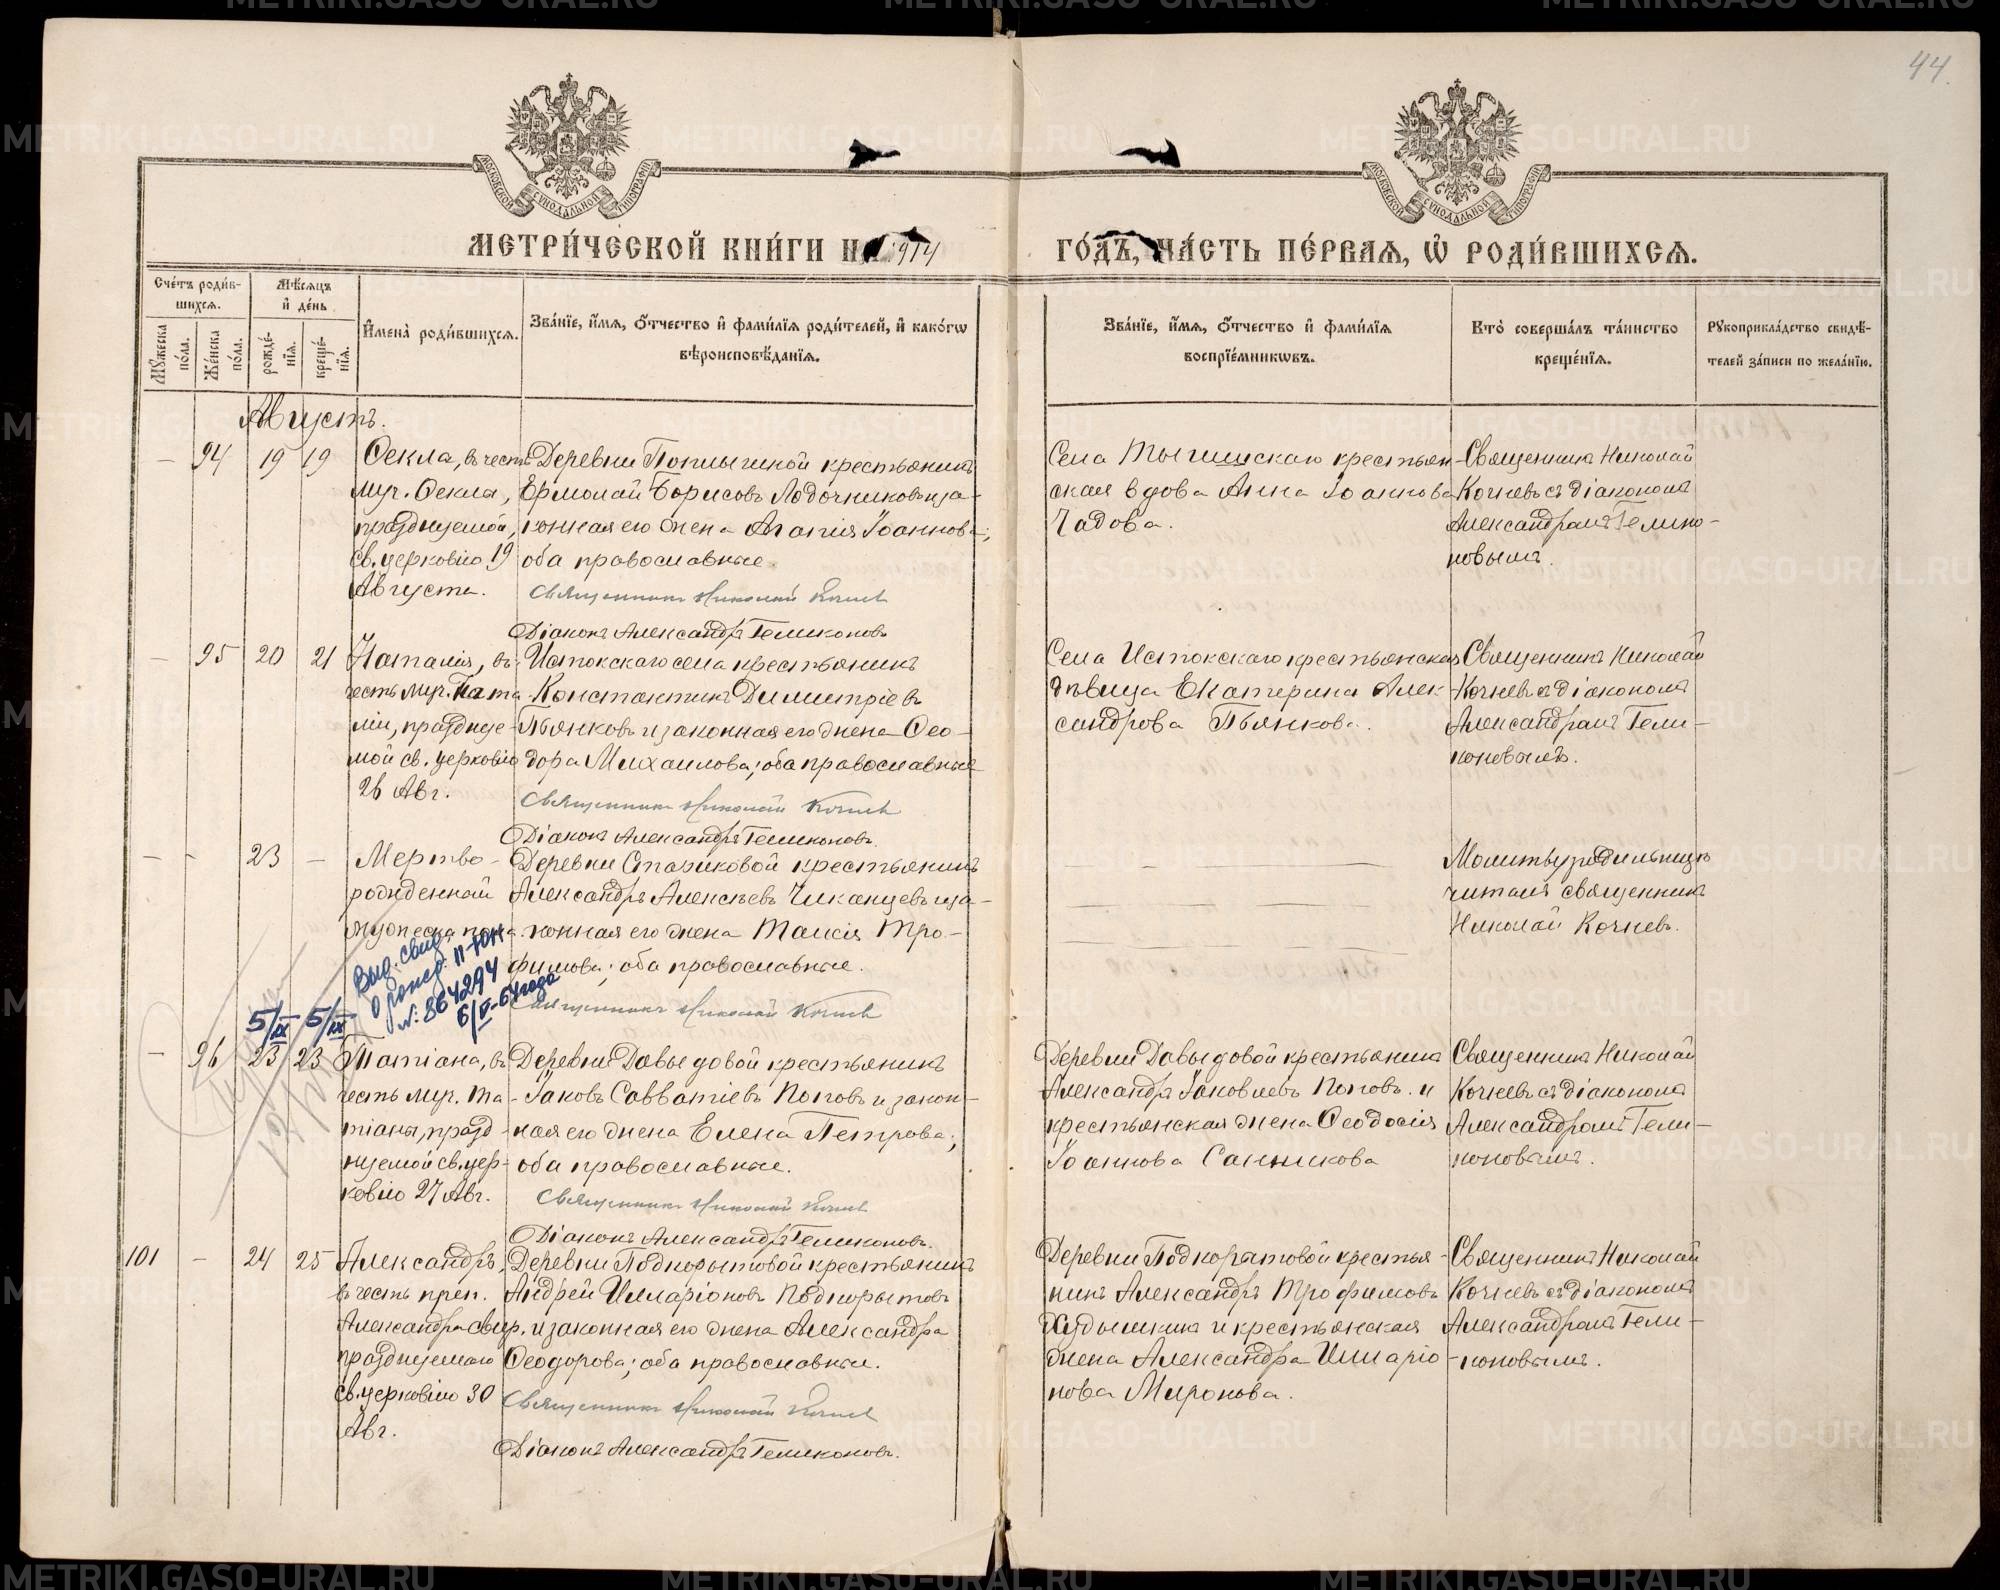 44.
МОСКОВСКОЙ СУНОДАЛЬНОЙ ТИПОГРАФІИ
МОСКОВСКОЙ СУНОДАЛЬНОЙ ТИПОГРАФІИ
МЕТРИ́ЧЕСКОЙ КНИ́ГИ НА 1914
ГО́ДЪ, ЧА́СТЬ ПЕ́РВАЯ, Ѿ РОДИ́ВШИХСЯ.
Сче́тъ роди́в-
шихся.
Мѣ́сяцъ
и҆ де́нь
Мꙋ́жеска по́ла.
Же́нска по́ла.
рожде́-
нїя.
креще́-
нїя.
И҆мена̀ роди́вшихся.
Зва́нїе, и҆́мя, ѻ҆́тчество и҆ фами́лїя роди́телей, и҆ како́гѡ
вѣроисповѣ́данїя.
Зва́нїе, и҆́мя, ѻ҆́тчество и҆ фами́лїя
воспрїе́мникѡвъ.
Кто̀ соверша́лъ та́инство
креще́нїя.
Рꙋкоприкла́дство свидѣ́-
телей за́писи по жела́нїю.
Августъ.
— 94 19 19
Ѳекла, въ честь
муч. Ѳекла,
празднуемой,
св. церковію 19
Августа.
Деревни Поплыгиной крестьянинъ
Ермолай Борисовъ Лодочниковъ и за-
конная его жена Агапія Іоаннова;
оба православные.
Священникъ Николай Кочнев
Діаконъ Александръ Геликоновъ
Села Тыгишскаго крестьян-
ская вдова Анна Іоаннова
Чадова.
Священникъ Николай
Кочневъ съ діакономъ
Александромъ Гелико-
новымъ.
— 95 20 21
Наталія, въ
честь муч. Ната
ліи, празднуе-
мой св. церковію
26 Авг.
Истокскаго села крестьянинъ
Константинъ Димитріевъ
Пьянковъ и законная его жена Ѳео-
дора Михаилова; оба православные
Священникъ Николай Кочнев
Діаконъ Александръ Геликоновъ.
Села Истокскаго крестьянская
дѣвица Екатерина Алек-
сандрова Пьянкова.
Священникъ Николай
Кочневъ съ діакономъ
Александромъ Гели-
коновымъ.
— - 23 —
Мертво-
рожденный
мужеска пола.
Деревни Стариковой крестьянинъ
Александръ Алексѣевъ Чиканцевъ и за-
конная его жена Таисія Тро-
фимова; оба православные.
Священникъ Николай Кочнев
Молитву родильницѣ
читалъ священникъ
Николай Кочневъ.
Выд. свид.
о рожд. II-ЮН
№: 864294
6/V-64 года
5/IX 5/IX
— 96 23 23
Татіана, въ
честь муч. Та-
тіаны, празд-
нуемой св. цер-
ковію 27 Авг.
Деревни Давыдовой крестьянинъ
Іаковъ Савватіевъ Поповъ и закон-
ная его жена Елена Петрова;
оба православные.
Священникъ Николай Кочнев
Діаконъ Александръ Геликоновъ.
Деревни Давыдовой крестьянинъ
Александръ Іаковлевъ Поповъ и
крестьянская жена Ѳеодосія
Іоаннова Санникова
Священникъ Николай
Кочневъ съ діакономъ
Александромъ Гели-
коновымъ.
101 - 24 25
Александръ,
въ честь преп.
Александра свир.
празднуемаго
св. церковію 30
Авг.
Деревни Подкорытовой крестьянинъ
Андрей Илларіоновъ Подкорытовъ
и законная его жена Александра
Ѳеодорова; оба православные.
Священникъ Николай Кочнев
Діаконъ Александръ Геликоновъ.
Деревни Подкорытовой крестья-
нинъ Александръ Трофимовъ
Худышкинъ и крестьянская
жена Александра Илларіо-
нова Миронова.
Священникъ Николай
Кочневъ съ діакономъ
Александромъ Гели-
коновымъ.